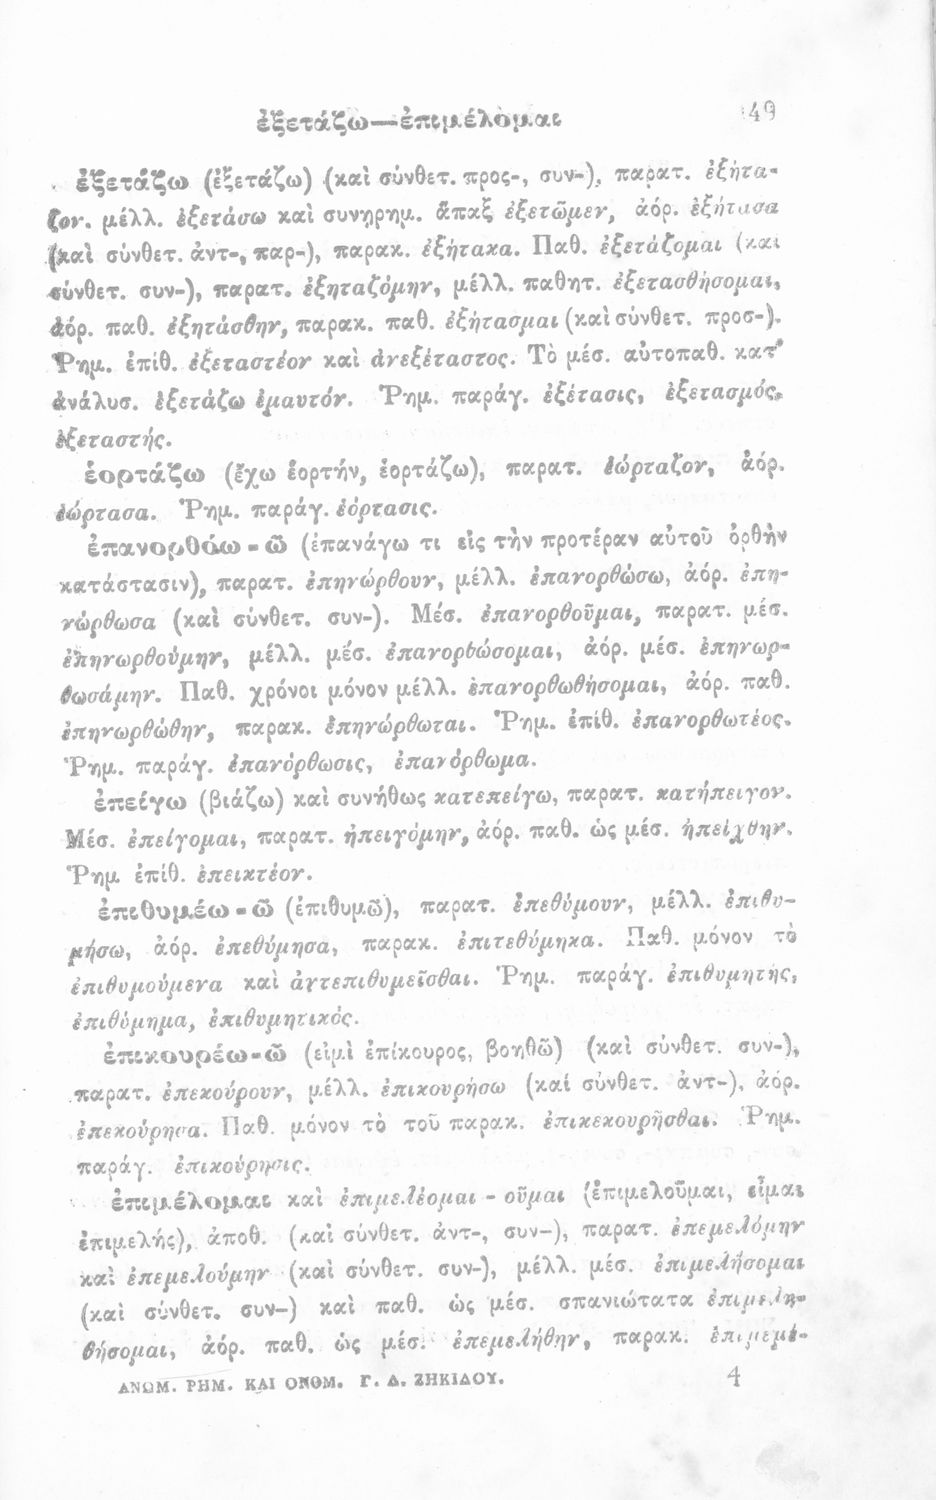 ἐξετάζω—ἐπιμέλομαι 49
ἐξετάζω (ἐξετάζω) (καὶ σύνθετ. προς-, συν-), παρατ. ἐξήτα-
ζον. μέλλ. ἐξετάσω καὶ συνῃρημ. ἅπαξ ἐξετῶμεν, ἀόρ. ἐξήτασα
(καὶ σύνθετ. ἀντ-, παρ-), παρακ. ἐξήτακα. Παθ. ἐξετάζομαι (καὶ
σύνθετ. συν-), παρατ. ἐξηταζόμην, μέλλ. παθητ. ἐξετασθήσομαι,
ἀόρ. παθ. ἐξητάσθην, παρακ. παθ. ἐξήτασμαι (καὶ σύνθετ. προσ-).
Ῥημ. ἐπίθ. ἐξεταστέον καὶ ἀνεξέταστος. Τὸ μέσ. αὐτοπαθ. κατ'
ἀνάλυσ. ἐξετάζω ἐμαυτόν. Ῥημ. παράγ. ἐξέτασις, ἐξετασμός,
ἐξεταστής.
ἑορτάζω (ἔχω ἑορτήν, ἑορτάζω), παρατ. ἑώρταζον, ἀόρ.
ἑώρτασα. Ῥημ. παράγ. ἑόρτασις.
ἐπανορθόω - ῶ (ἐπανάγω τι εἰς τὴν προτέραν αὐτοῦ ὀρθὴν
κατάστασιν), παρατ. ἐπηνώρθουν, μέλλ. ἐπανορθώσω, ἀόρ. ἐπη-
νώρθωσα (καὶ σύνθετ. συν-). Μέσ. ἐπανορθοῦμαι, παρατ. μέσ.
ἐπηνωρθούμην, μέλλ. μέσ. ἐπανορθώσομαι, ἀόρ. μέσ. ἐπηνωρ-
θωσάμην. Παθ. χρόνοι μόνον μέλλ. ἐπανορθωθήσομαι, ἀόρ. παθ.
ἐπηνωρθώθην, παρακ. ἐπηνώρθωται. Ῥημ. ἐπίθ. ἐπανορθωτέος.
Ῥημ. παράγ. ἐπανόρθωσις, ἐπανόρθωμα.
ἐπείγω (βιάζω) καὶ συνήθως κατεπείγω, παρατ. κατήπειγον.
Μέσ. ἐπείγομαι, παρατ. ἠπειγόμην, ἀόρ. παθ. ὡς μέσ. ἠπείχθην.
Ῥημ ἐπίθ. ἐπεικτέον.
ἐπιθυμέω - ῶ (ἐπιθυμῶ), παρατ. ἐπεθύμουν, μέλλ. ἐπιθυ-
μήσω, ἀόρ. ἐπεθύμησα, παρακ. ἐπιτεθύμηκα. Παθ. μόνον τὸ
ἐπιθυμούμενα καὶ ἀντεπιθυμεῖσθαι. Ῥημ. παράγ. ἐπιθυμητής,
ἐπιθύμημα, ἐπιθυμητικός.
ἐπικουρέω-ῶ (εἰμὶ ἐπίκουρος, βοηθῶ) (καὶ σύνθετ. συν-),
παρατ. ἐπεκούρουν, μέλλ. ἐπικουρήσω (καὶ σύνθετ. ἀντ-), ἀόρ.
ἐπεκούρησα. Παθ. μόνον τὸ τοῦ παρακ. ἐπικεκουρῆσθαι. Ῥημ.
παράγ. ἐπικούρησις.
ἐπιμέλομαι καὶ ἐπιμελέομαι - οῦμαι (ἐπιμελοῦμαι, εἶμαι
ἐπιμελής), ἀποθ. (καὶ σύνθετ. ἀντ-, συν-), παρατ. ἐπεμελόμην
καὶ ἐπεμελούμην (καὶ σύνθετ. συν-), μέλλ. μέσ. ἐπιμελήσομαι
(καὶ σύνθετ. συν-) καὶ παθ. ὡς μέσ. σπανιώτατα ἐπιμελη-
θήσομαι, ἀόρ. παθ. ὡς μέσ. ἐπεμελήθην, παρακ. ἐπιμεμέ-
ΑΝΩΜ. ΡΗΜ. ΚΑΙ ΟΝΟΜ. Γ. Δ. ΖΗΚΙΔΟΥ. 4